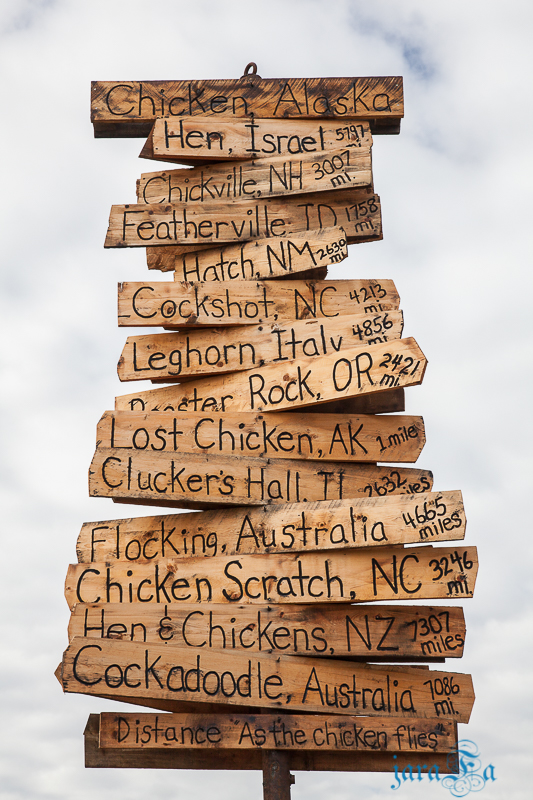 Chicken, Alaska
Hen, Israel 5797 mi.
Chickville, NH 3007 mi.
Featherville, ID 1758 mi.
Hatch, NM 2630 mi.
Cockshot, NC 4213 mi.
Leghorn, Italy 4856 mi.
Rooster Rock, OR 2421 mi.
Lost Chicken, AK 1 mile
Clucker's Hall, IL 2632 miles
Flocking, Australia 4665 miles
Chicken Scratch, NC 3246 mi.
Hen & Chickens, NZ 7307 miles
Cockadoodle, Australia 7086 mi.
Distance As the chicken flies*